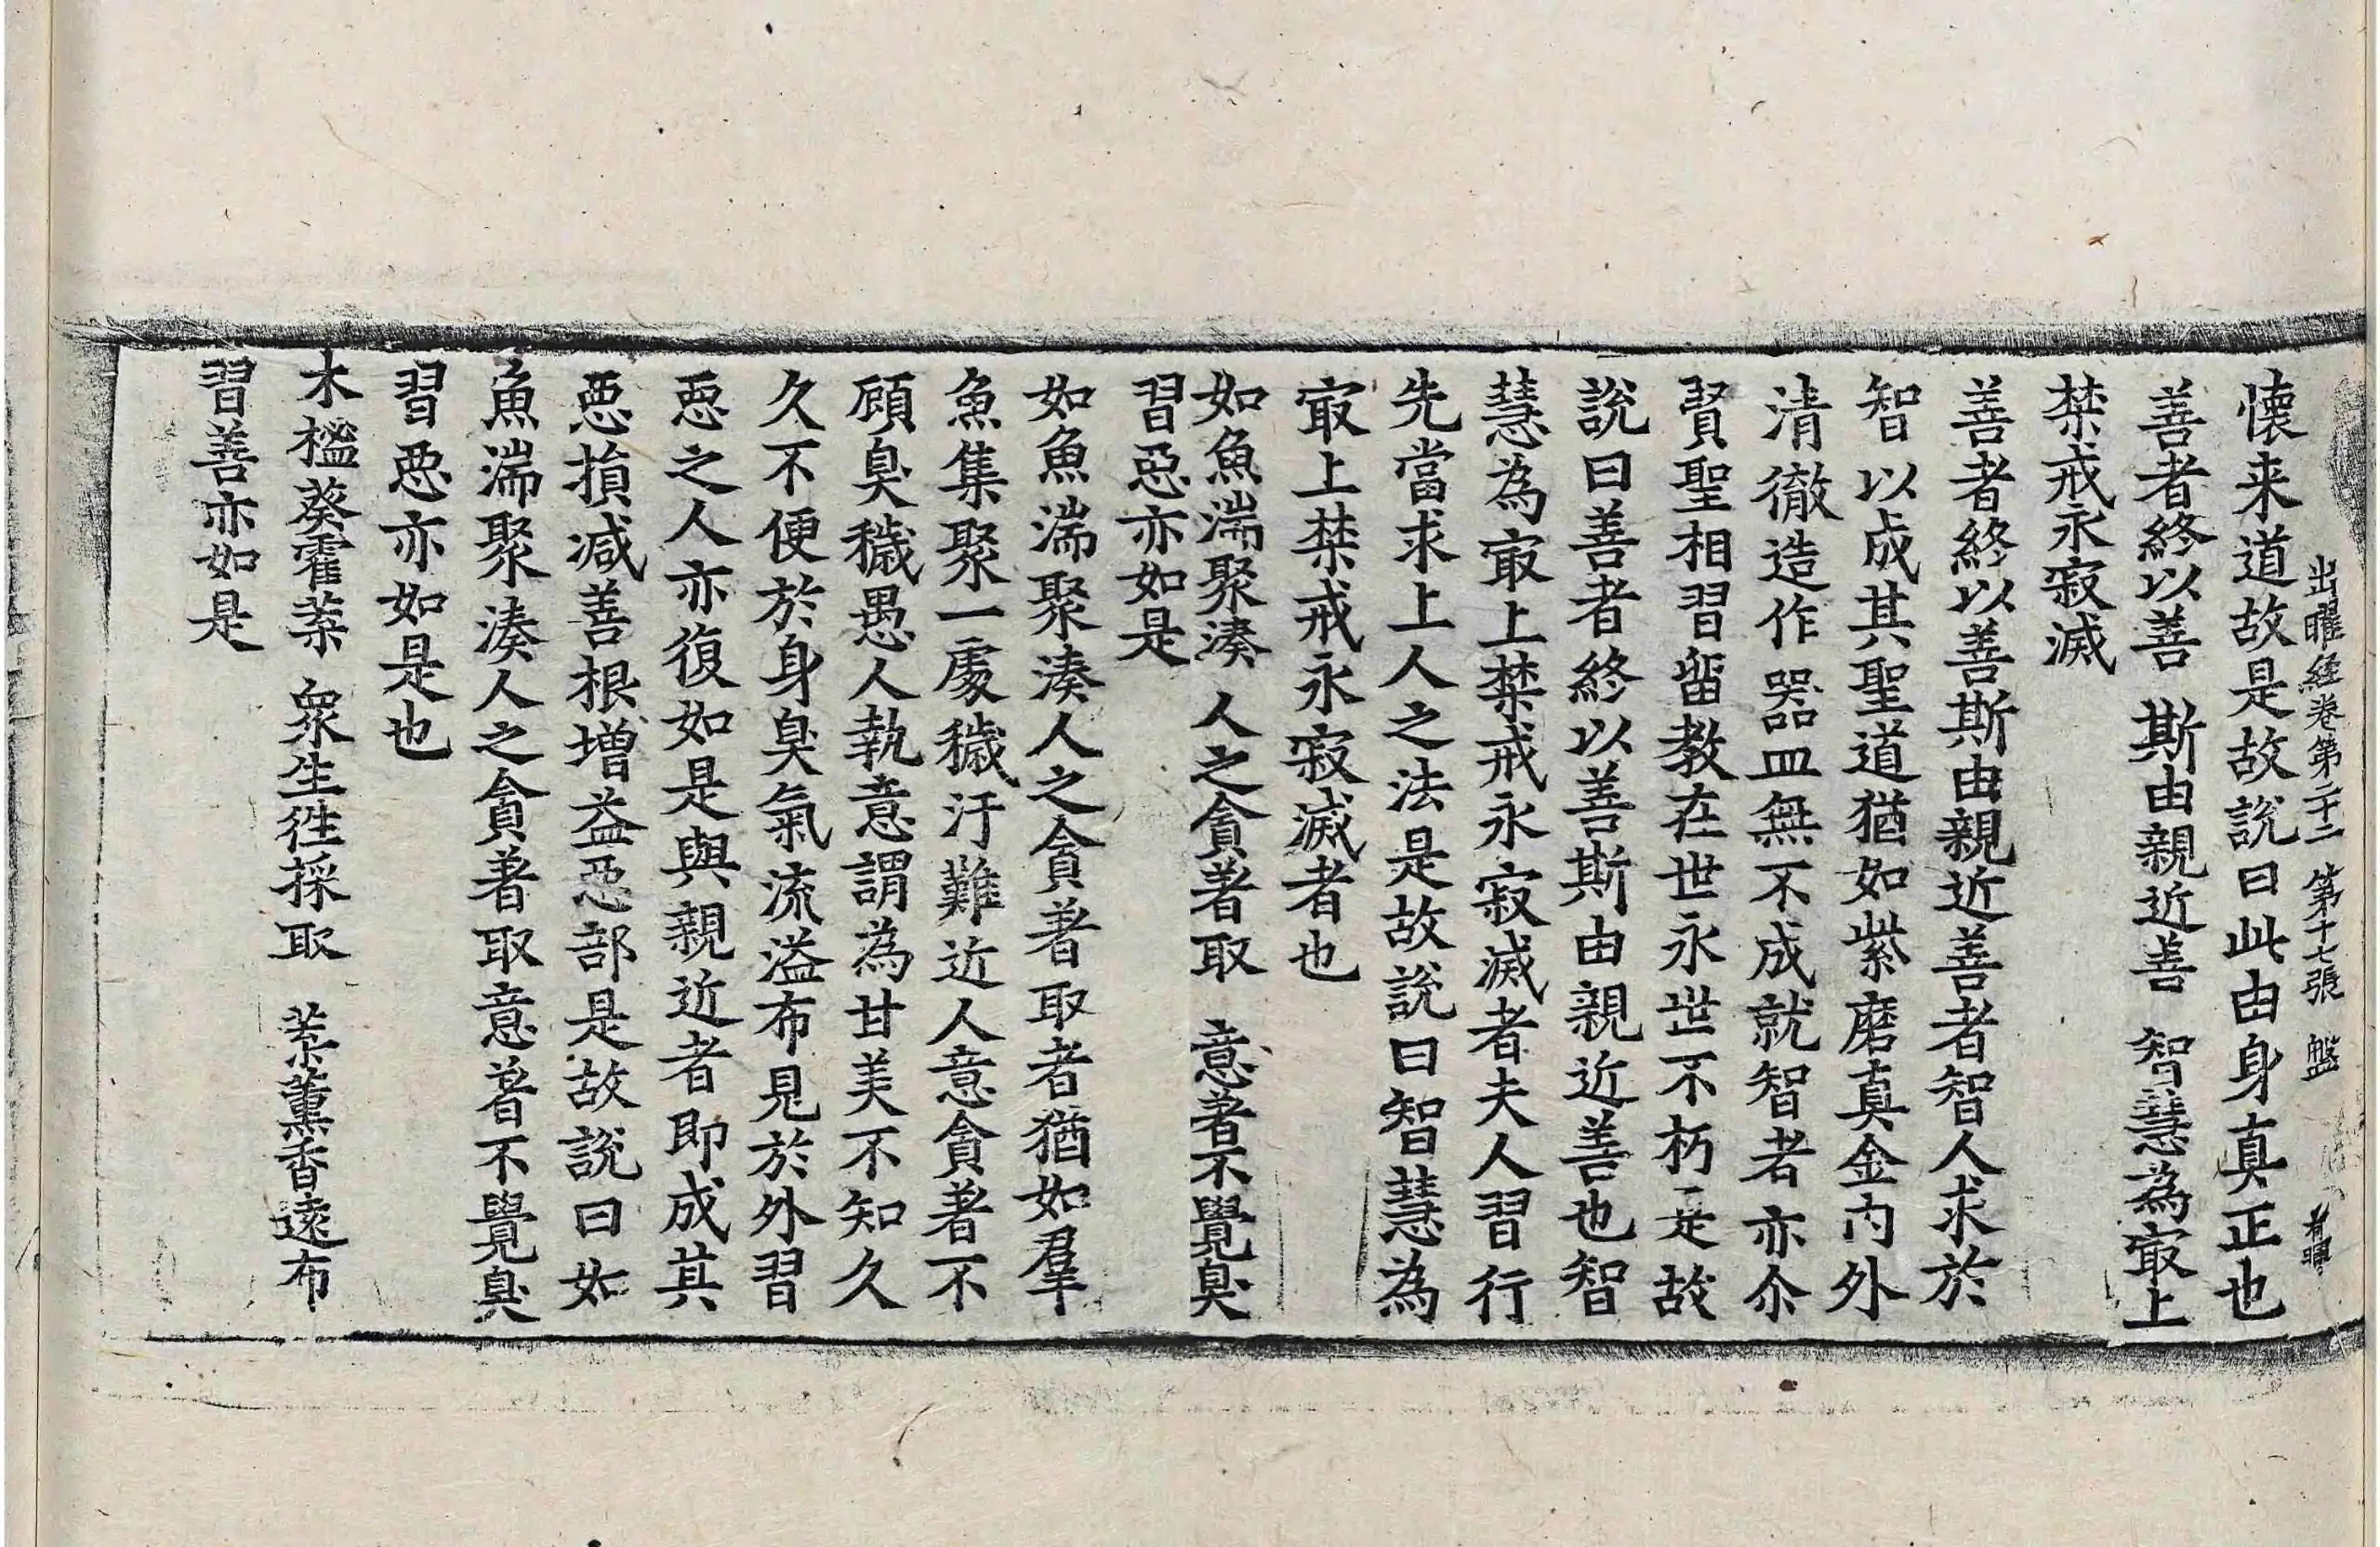 出曜経卷第二十二　第十七張　盤
懐来道故是故說曰此由身真正也
善者終以善　斯由親近善　智慧為㝡上
禁戒永寂滅
善者終以善斯由親近善者智人求於
智以成其聖道猶如紫磨真金内外
清徹造作器皿無不成就智者亦尒
賢聖相習留教在世永世不朽是故
說曰善者終以善斯由親近善也智
慧為㝡上禁戒永寂滅者夫人習行
先當求上人之法是故說曰智慧為
㝡上禁戒永寂滅者也
如魚湍聚湊　人之貪著取　意著不覺臭
習惡亦如是
如魚湍聚湊人之貪著取者猶如羣
魚集聚一處穢汙難近人意貪著不
顧臭穢愚人執意謂為甘美不知久
久不便於身臭氣流溢布見於外習
惡之人亦復如是與親近者即成其
惡損减善根增益惡部是故說曰如
魚湍聚湊人之貪著取意著不覺臭
習惡亦如是也
木榓葵霍葉　衆生往採取　葉薰香遠布
習善亦如是